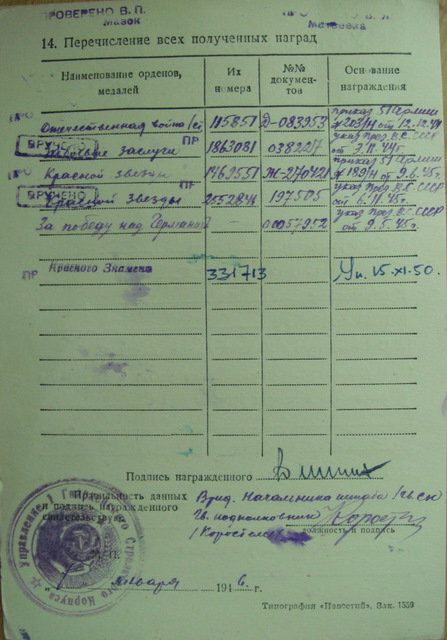 ПРОВЕРЕНО В. П.
Мазок
14. Перечисление всех полученных наград
Наименование орденов, медалей
Их номера
№№ документов
Основание награждения
ПРО Отечественная война I ст 1158 Д-083953 приказ 51 Армии №203/Н от 12.12.44
ВРУЧЕНО ПР Боевые заслуги 1863081 038227 указ През. В.С. СССР от 3.11.44г.
ПРО Красной звезды 1469551 Ж-270421 приказ 51 Армии №189/Н от 9.6.45г.
ВРУЧЕНО ПР Красной звезды 197505 указ През. В.С. СССР от 6.11.45г.
За победу над Германией 00057952 указ През. В.С. СССР от 9.5.45г.
ПР Красного Знамени 331713 Ук. 15.XI.50.
Подпись награжденного
Правильность данных и подпись награжденного свидетельствую:
Врид. Начальника штаба 1 гв. ск
Гв. подполковник
должность и подпись
Управление 1 Гвардейского Стрелкового Корпуса
М.П.
января 1946 г.
Типография «Известий», Зак. 1559